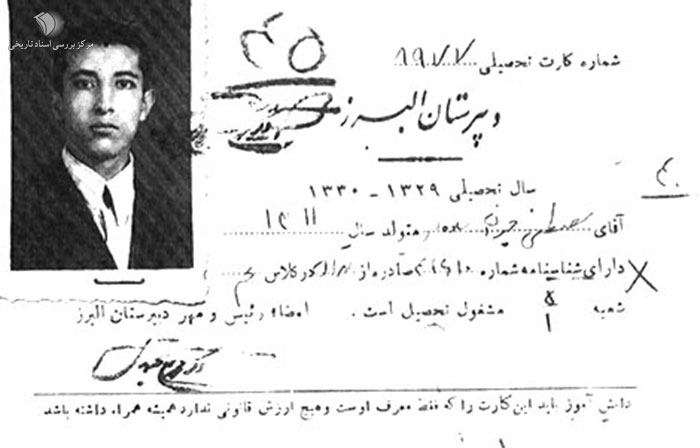 مرکز بررسی اسناد تاریخی
۴۵
شماره کارت تحصیلی ۱۹۷۷
دبیرستان البرز
سال تحصیلی ۱۳۲۹ - ۱۳۳۰
۴۰
آقای مصطفی متولد سال ۱۳۱۱
دارای شناسنامه شماره صادره از در کلاس
شعبه ۱ مشغول تحصیل است . امضاء رئیس و مهر دبیرستان البرز
دانش آموز باید این کارت را که فقط معرف اوست و هیچ ارزش قانونی ندارد همیشه همراه داشته باشد